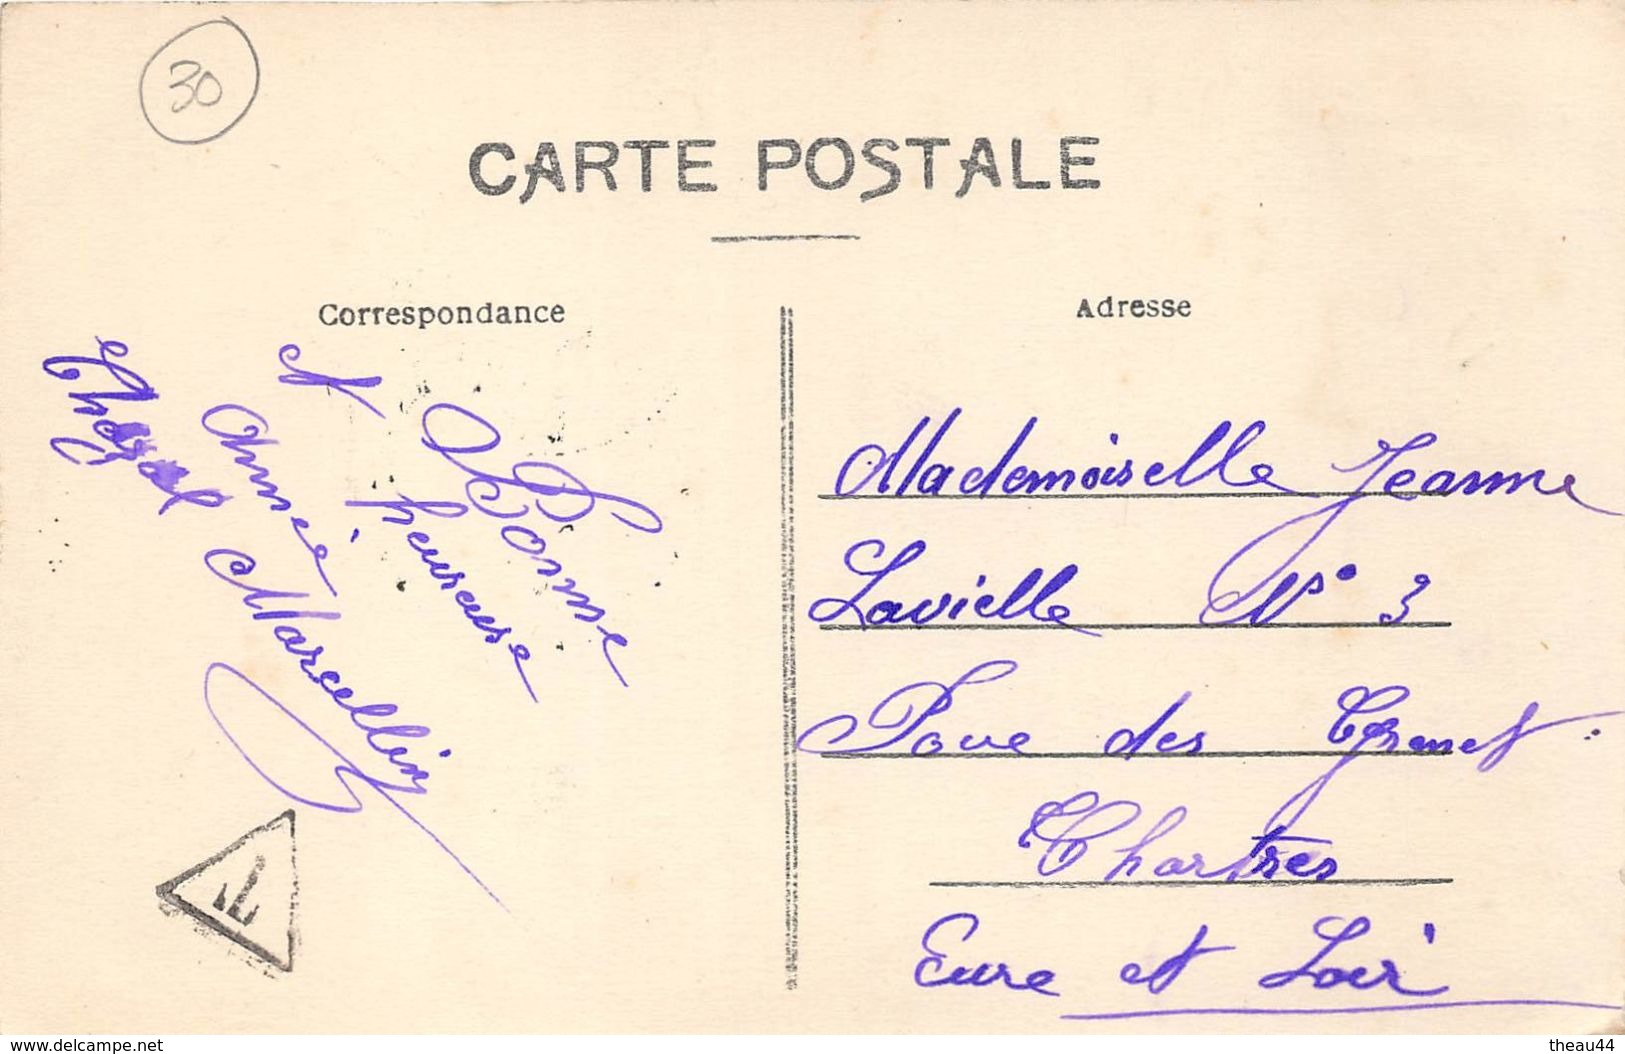 30
CARTE POSTALE
Correspondance
Adresse
Bonne
et heureuse
année Marcellin
Mademoiselle Jeanne
Lavielle N° 3
des
Chartres
Eure et Loir
T
delcampe.net
theau44